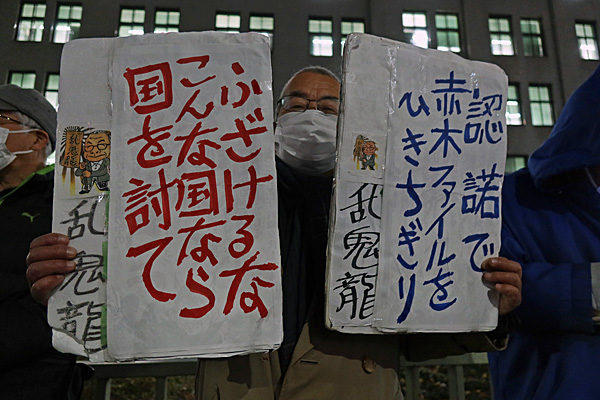 ふざけるな
こんな国なら
国を討て
乱鬼龍
認諾で
赤木ファイルを
ひきちぎり
乱鬼龍